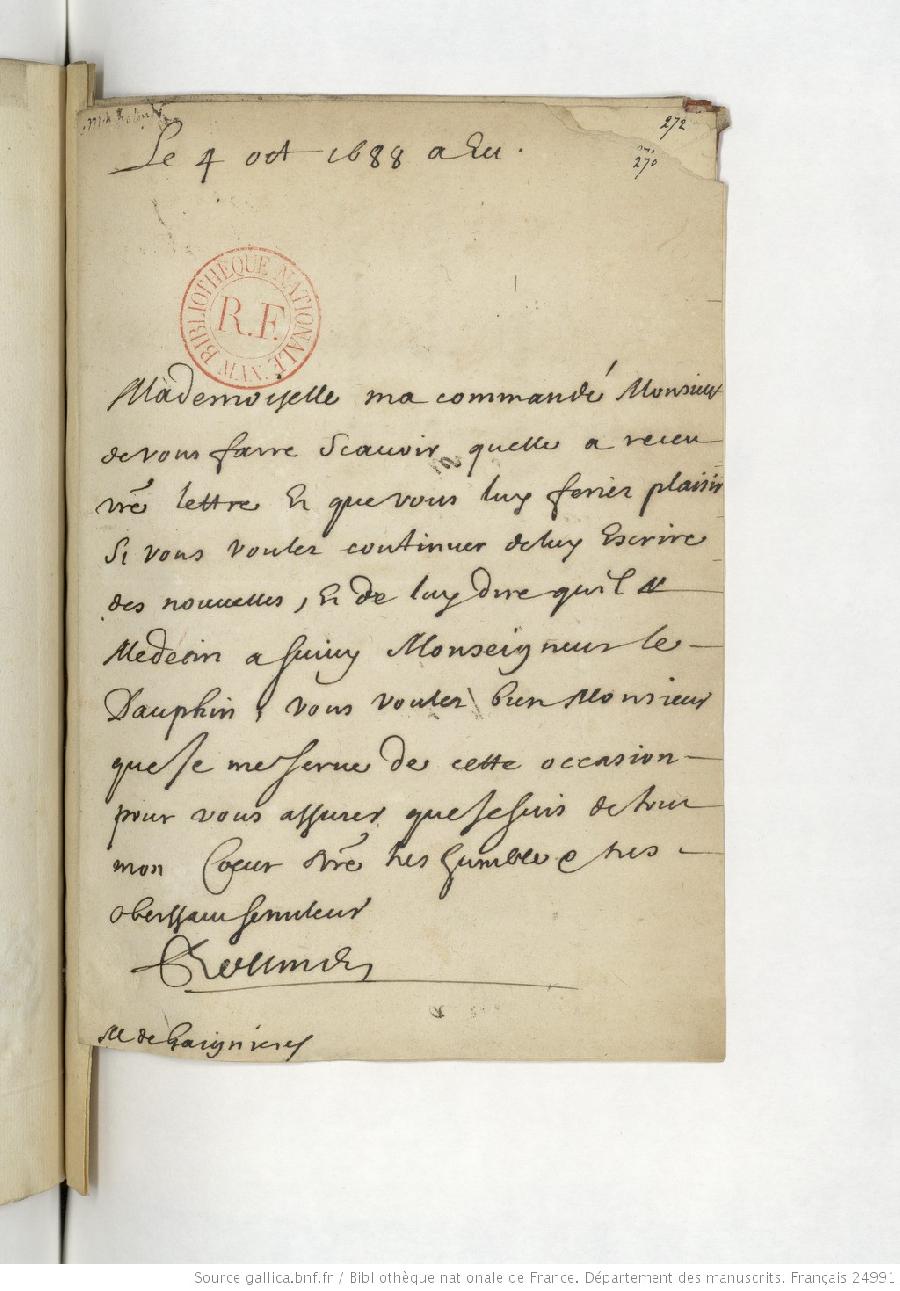 272
270
Le 4 oct 1688 a Eu.
BIBLIOTHEQUE NATIONALE MSS
R.F.
Mademoiselle ma commandé Monsieur
de vous faire Scauoir quelle a receu
vre lettre Et que vous luy feries plaisir
Si vous voules continuer de luy Escrire
des nouuelles, Et de luy dire quil
Medecin a suiuy Monseigneur le
Dauphin, vous voules bien Monsieur
que Je me serue de cette occasion
pour vous assurer que Je suis de tout
mon Coeur vre tres humble e tres
obeissant seruiteur
M de Gaignieres
Source gallica.bnf.fr / Bibliothèque nationale de France. Département des manuscrits. Français 24991